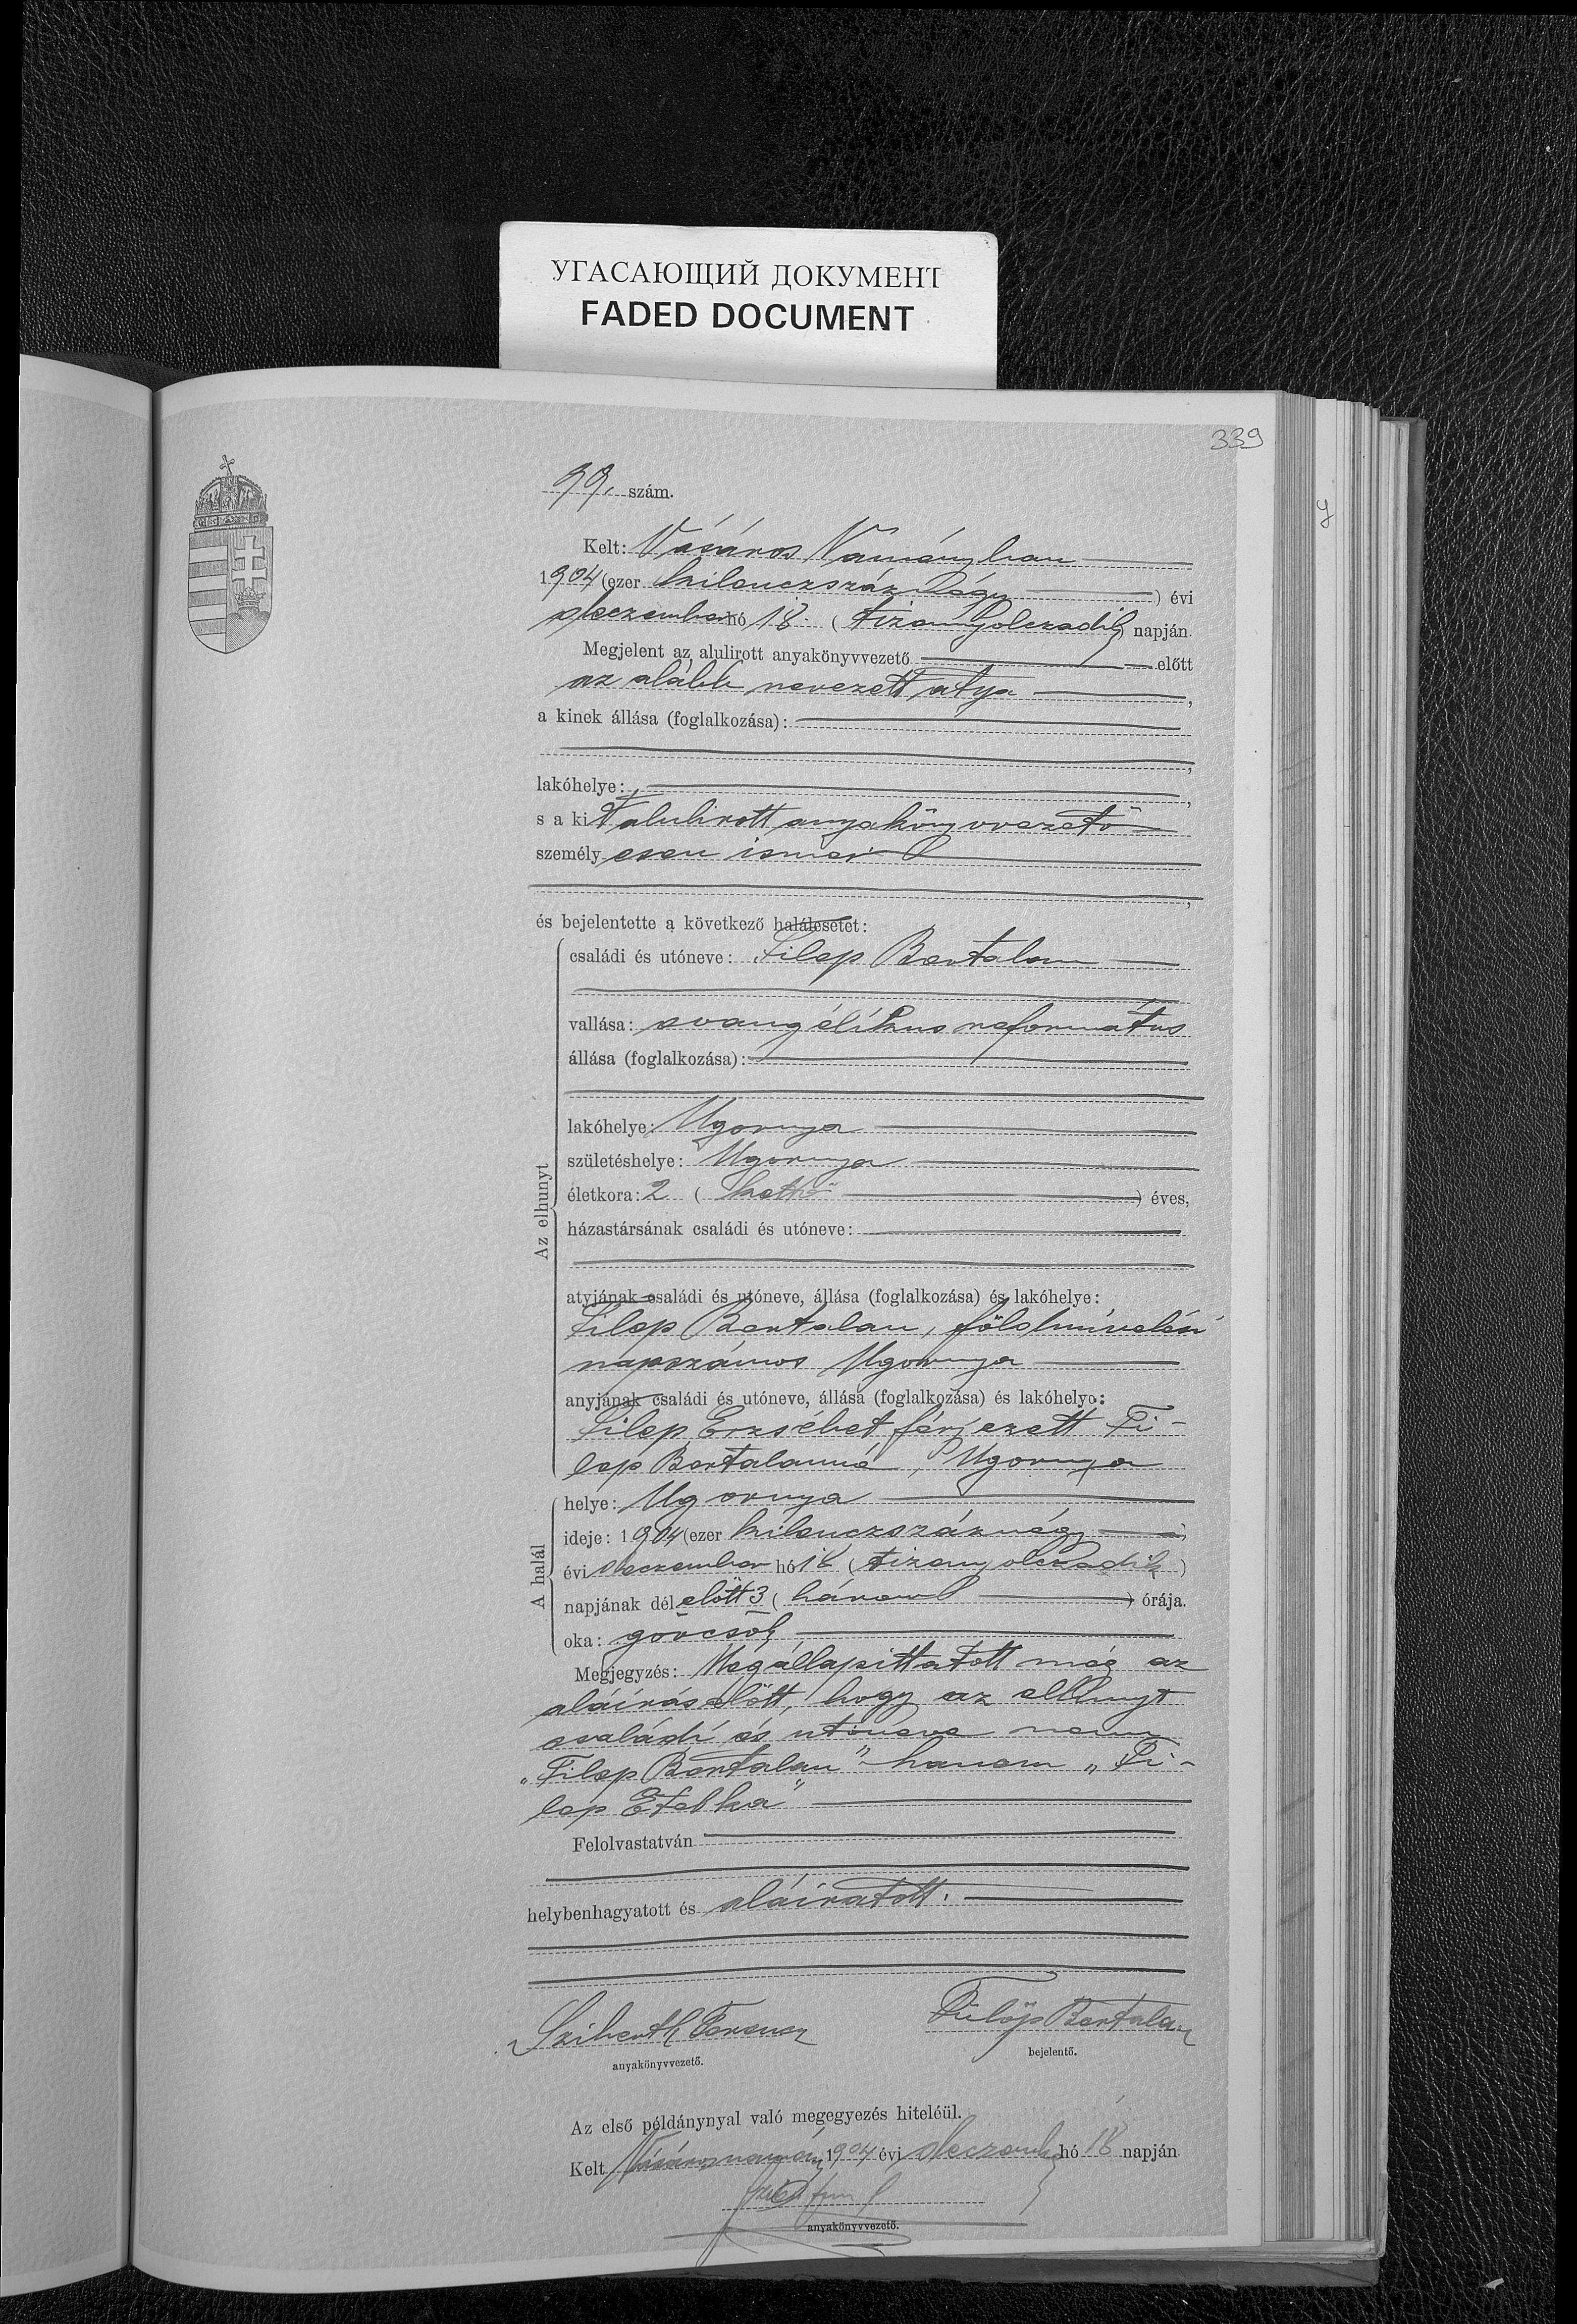 УГАСАЮЩИЙ ДОКУМЕНТ
FADED DOCUMENT
339
99. szám.
Kelt: Vásáros Naményban
1904 (ezer kilenczszáz négy) évi
deczember hó 18. (tizennyolczadik) napján.
Megjelent az alulirott anyakönyvvezető előtt
az alább nevezett atya,
a kinek állása (foglalkozása):
lakóhelye:
s a kit alulirott anyakönyvvezető
személyesen ismer
és bejelentette a következő halálesetet:
Az elhunyt
családi és utóneve: Filep Bertalan
vallása: evangélikus református
állása (foglalkozása):
lakóhelye: Ugornya
születéshelye: Ugornya
életkora: 2 (kettő) éves,
házastársának családi és utóneve:
atyjának családi és utóneve, állása (foglalkozása) és lakóhelye:
Filep Bertalan, földmívelési
napszámos Ugornya
anyjának családi és utóneve, állása (foglalkozása) és lakóhelye:
Filep Erzsébet férjezett Fi-
lep Bertalanné, Ugornya
A halál
helye: Ugornya
ideje: 1904 (ezer kilenczszáznégy)
évi deczember hó 18 (tizennyolczadik)
napjának dél előtt 3 (három) órája.
oka: görcsök
Megjegyzés: Megállapittatott még az
aláírás előtt, hogy az elhunyt
családi és utóneve nem
„Filep Bertalan" hanem „Fi-
lep Etelka"
Felolvastatván
helybenhagyatott és aláiratott.
Sziberth Ferencz
anyakönyvvezető.
Fülöp Bertalan
bejelentő.
Az első példánynyal való megegyezés hiteléül.
Kelt Vásárosnamény 1904 évi deczember hó 18 napján
anyakönyvvezető.